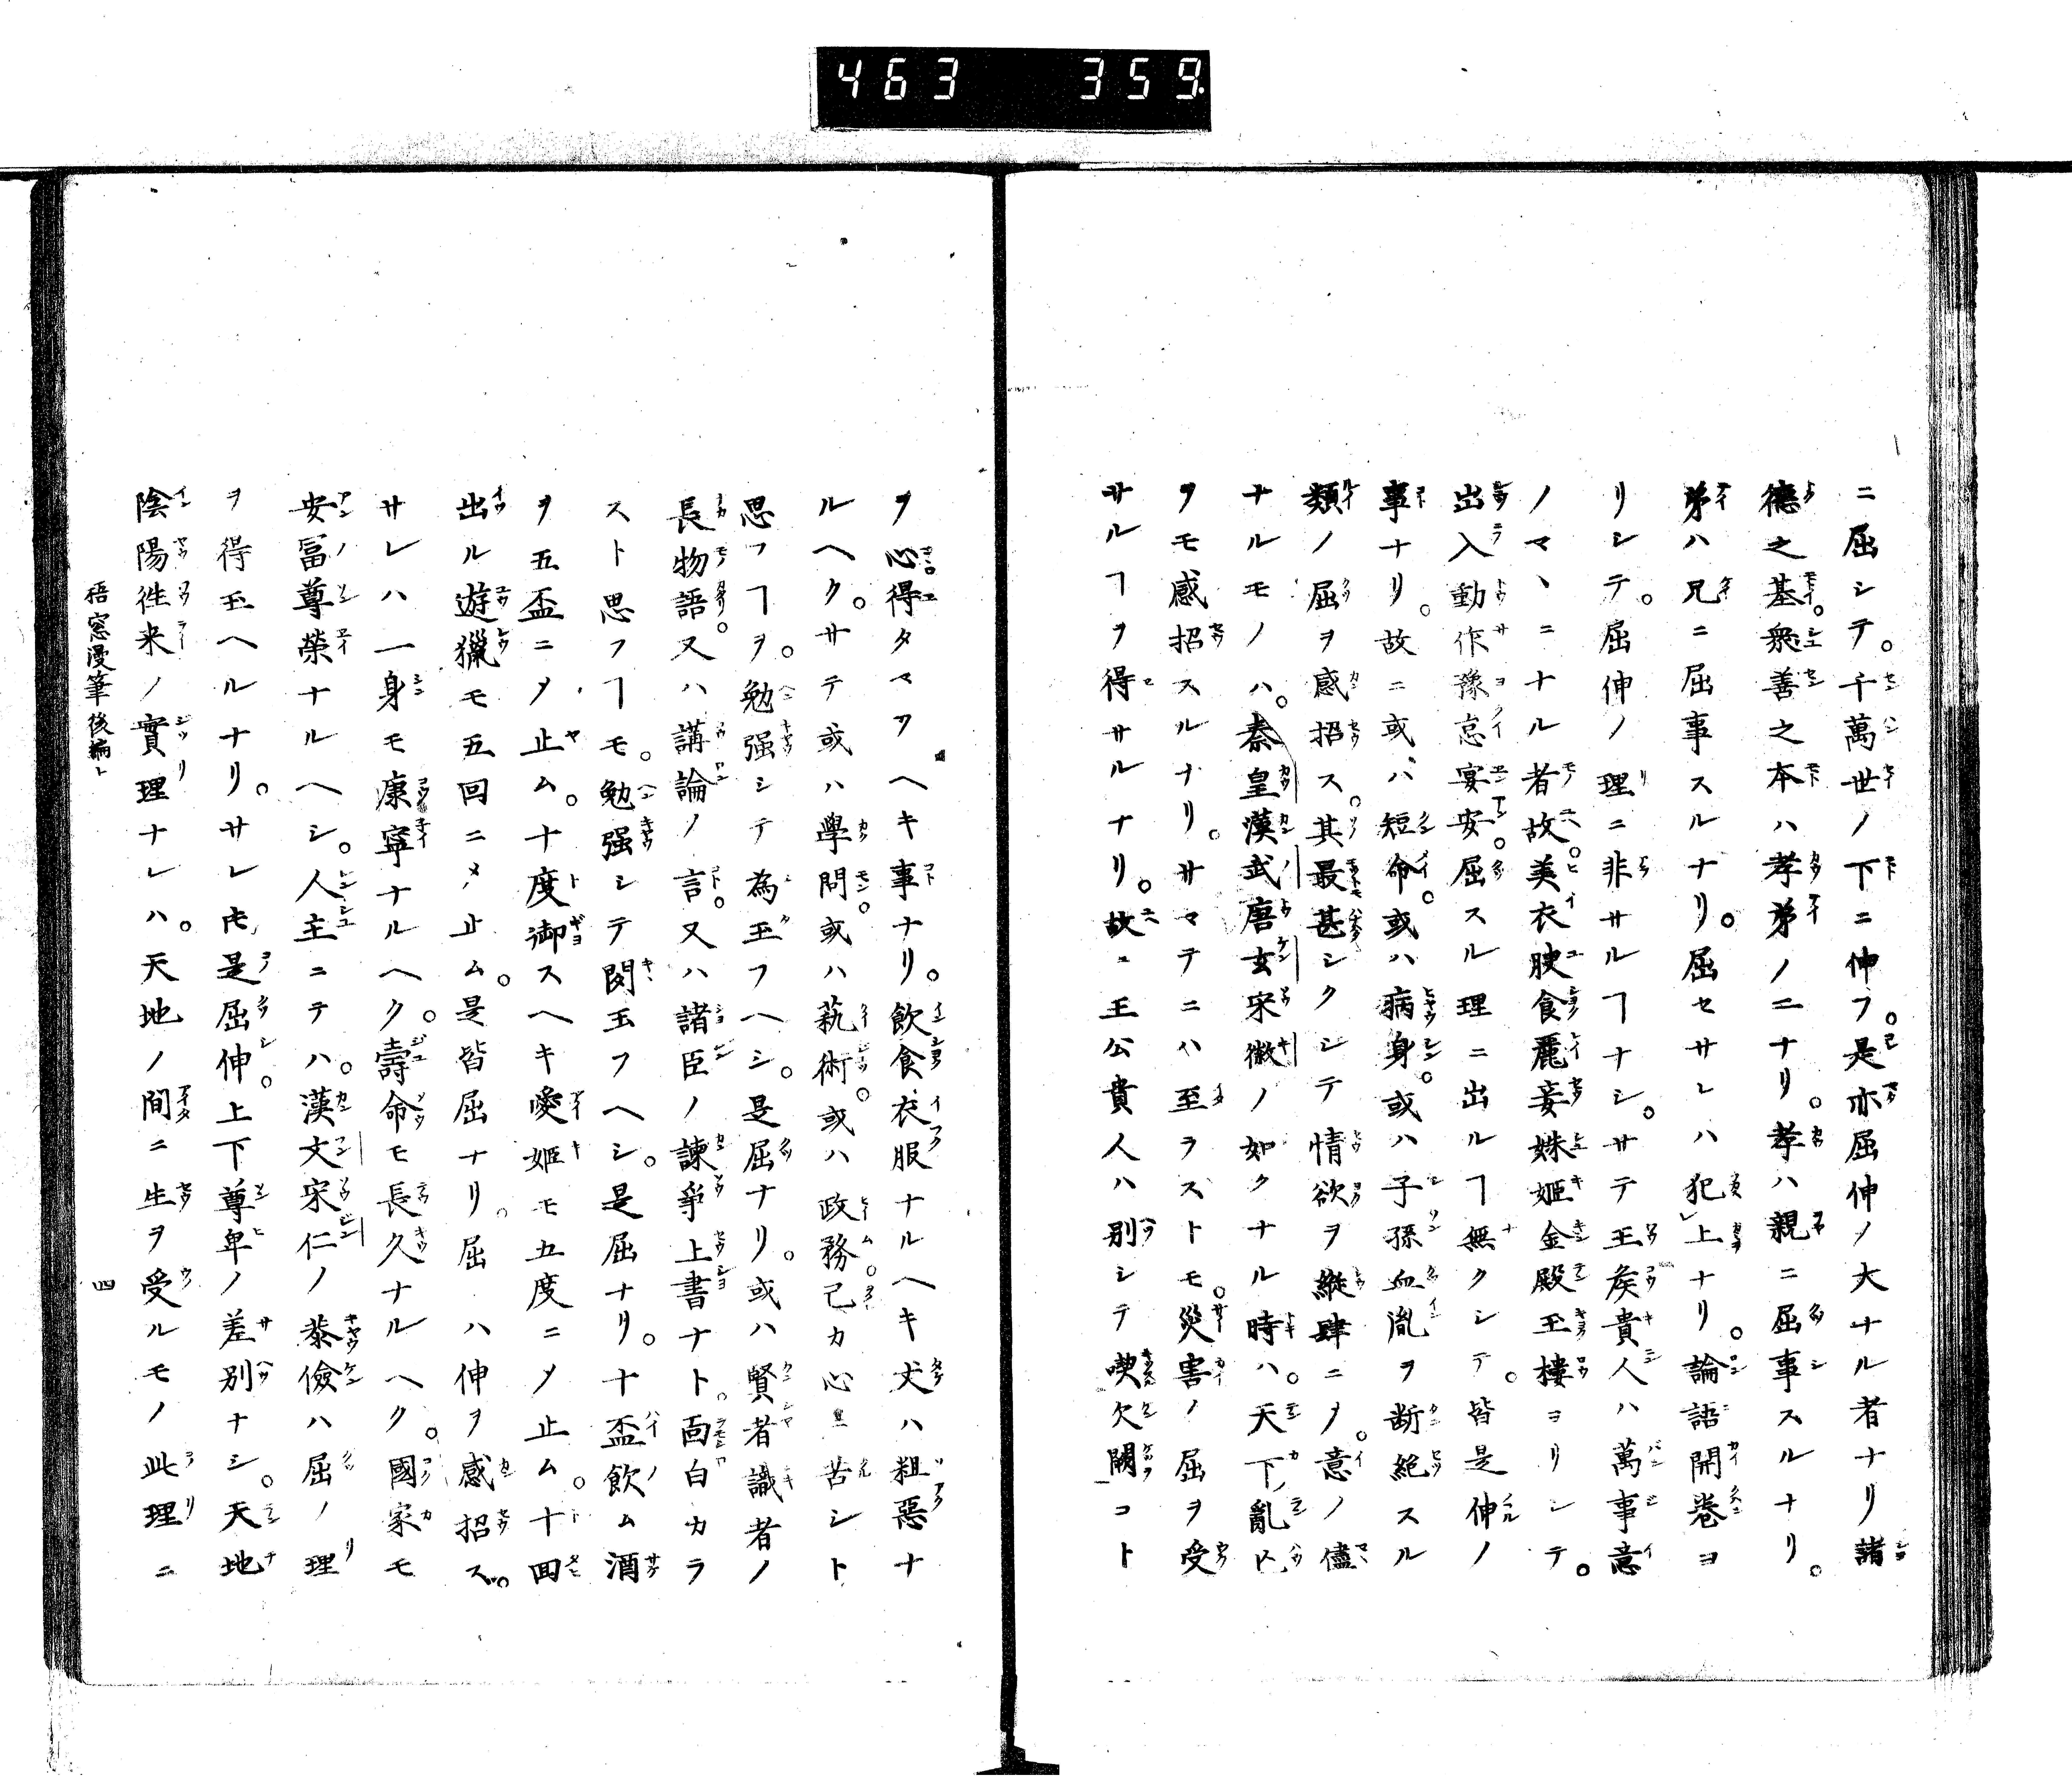 463 359
ニ屈シテ。千萬世ノ下ニ伸フ。是亦屈伸ノ大ナル者ナリ諸
德之基。衆善之本ハ孝弟ノ二ナリ。孝ハ親ニ屈事スルナリ。
弟ハ兄ニ屈事スルナリ。屈セサレハ犯上ナリ。論語開卷ヨ
リシテ。屈伸ノ理ニ非サルヿナシ。サテ王矦貴人ハ萬事意
ノマヽニナル者故。美衣腴食麗妾姝姬金殿玉樓ヨリシテ。
出入動作豫怠宴安。屈スル理ニ出ルヿ無クシテ。皆是伸ノ
事ナリ。故ニ或ハ短命。或ハ病身。或ハ子孫血胤ヲ断絶スル
類ノ屈ヲ感招ス。其最甚シクシテ情欲ヲ縱肆ニメ。意ノ儘
ナルモノハ。秦皇漢武唐玄宋徽ノ如クナル時ハ。天下亂亡
ヲモ感招スルナリ。サマテニハ至ラストモ。災害ノ屈ヲ受
サルヿヲ得サルナリ。故ニ王公貴人ハ別シテ喫欠闕コト
ヲ心得タマフヘキ事ナリ。飲食衣服ナルヘキ丈ハ粗惡ナ
ルヘク。サテ或ハ學問。或ハ藝術。或ハ政務。己カ心ニ苦シト
思フヿヲ。勉强シテ為玉フヘシ。是屈ナリ。或ハ賢者識者ノ
長物語。又ハ講論ノ言。又ハ諸臣ノ諫爭上書ナト。面白カラ
スト思フヿモ。勉强シテ聞玉フヘシ。是屈ナリ。十盃飲ム酒
ヲ五盃ニメ止ム。十度御スヘキ愛姬モ五度ニメ止ム。十囬
出ル遊獵モ五回ニメ止ム。是皆屈ナリ。屈ハ伸ヲ感招ス。
サレハ一身モ康寧ナルヘク。壽命モ長久ナルヘク。國家モ
安冨尊榮ナルヘシ。人主ニテハ。漢文宋仁ノ恭儉ハ屈ノ理
ヲ得玉ヘルナリ。サレ𪜈是屈伸。上下尊卑ノ差別ナシ。天地
陰陽徃来ノ實理ナレハ。天地ノ間ニ生ヲ受ルモノ此理ニ
梧窓漫筆後編上
四